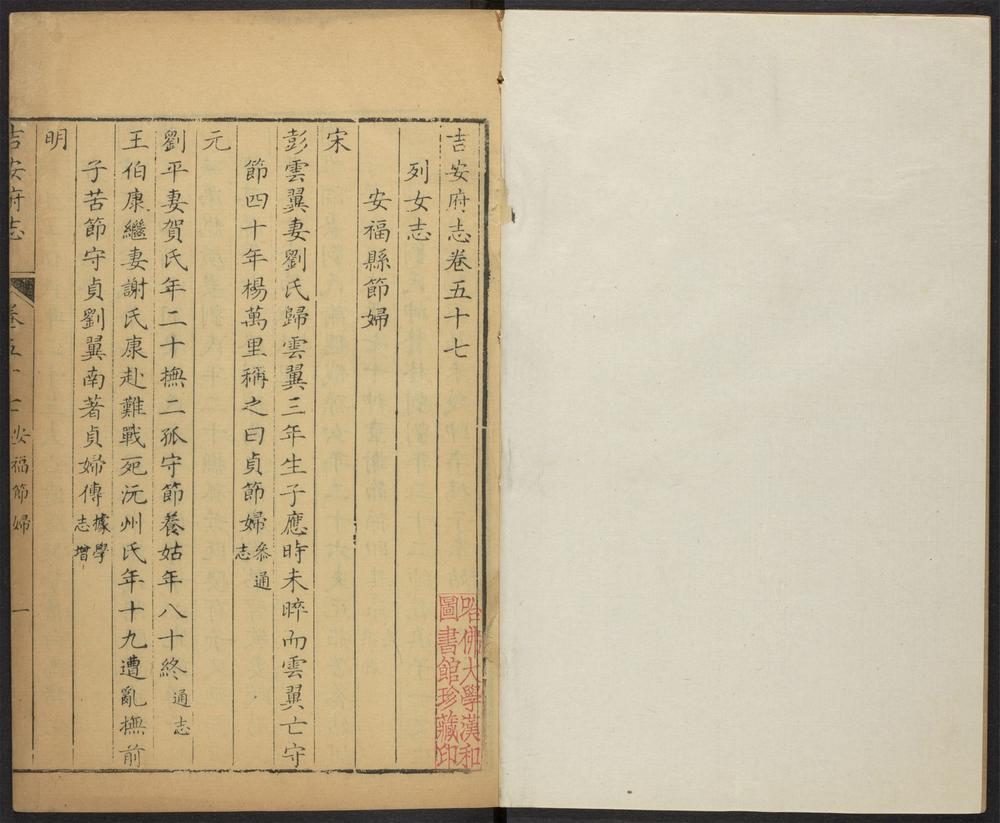 吉安府志卷五十七
列女志
安福縣節婦
宋
彭雲翼妻劉氏歸雲翼三年生子應時未晬而雲翼亡守
節四十年楊萬里稱之曰貞節婦叅通志
元
劉平妻賀氏年二十撫二孤守節養姑年八十終通志
王伯康繼妻謝氏康赴難戰死沅州氏年十九遭亂撫前
子苦節守貞劉翼南著貞婦傳據學志增
明
吉安府志 卷五十七 安福節婦 一
哈佛大學漢和
圖書館珍藏印